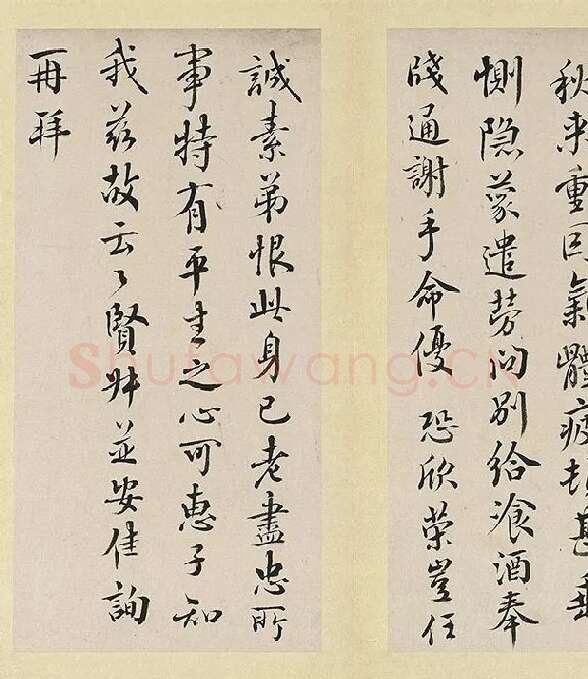 秋来重因氣體疲
惻隐蒙遣劳问别给飡酒奉
牋通謝手命優恐欣荣豈任
誠素弟恨此身已老盡忠所
事特有平生之心可惠子知
我兹故云々賢并並安佳詢
再拜
Shufawang.CN